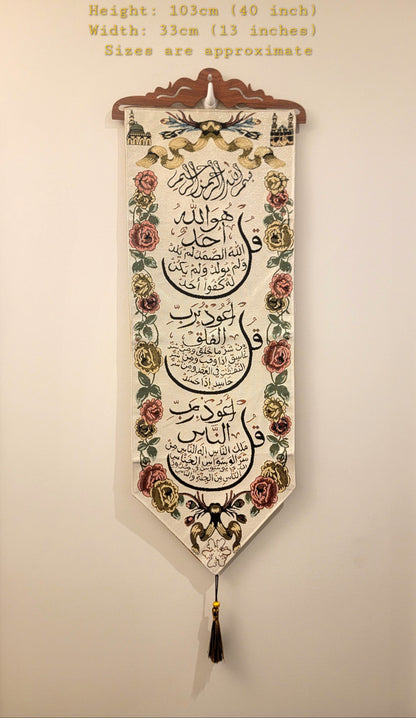 Height: 103cm (40 inch)
Width: 33cm (13 inches)
Sizes are approximate
بسم الله الرحمن الرحيم
قل هو الله
أحد
الله الصمد لم يلد
ولم يولد ولم يكن
له كفوا أحد
قل أعوذ برب
الفلق
من شر ما خلق ومن شر
غاسق إذا وقب ومن شر
النفثت في العقد ومن شر
حاسد إذا حسد
قل أعوذ برب
الناس
ملك الناس إله الناس من
شر الوسواس الخناس
الذي يوسوس في صدور
الناس من الجنة والناس